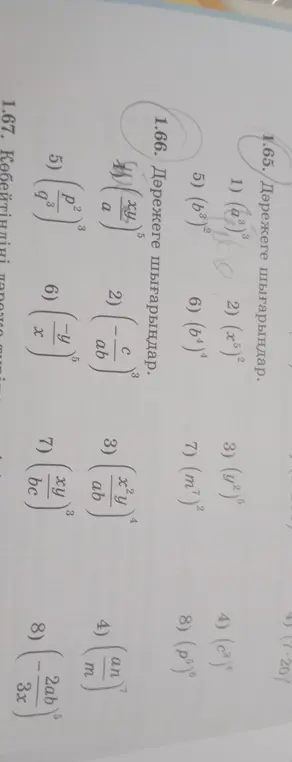 1.65. Дәрежеге шығарыңдар.
1) (a³)³ 2) (x⁵)² 3) (y²)⁵ 4) (c³)⁴
5) (b³)² 6) (b⁴)⁴ 7) (m⁷)² 8) (p⁵)⁶
1.66. Дәрежеге шығарыңдар.
1) (xy/a)⁵ 2) (-c/ab)³ 3) (x²y/ab)⁴ 4) (an/m)⁷
5) (p²/q³)³ 6) (-y/x)⁵ 7) (xy/bc)³ 8) (-2ab/3x)⁵
1.67. Көбейтіндіні дәреже